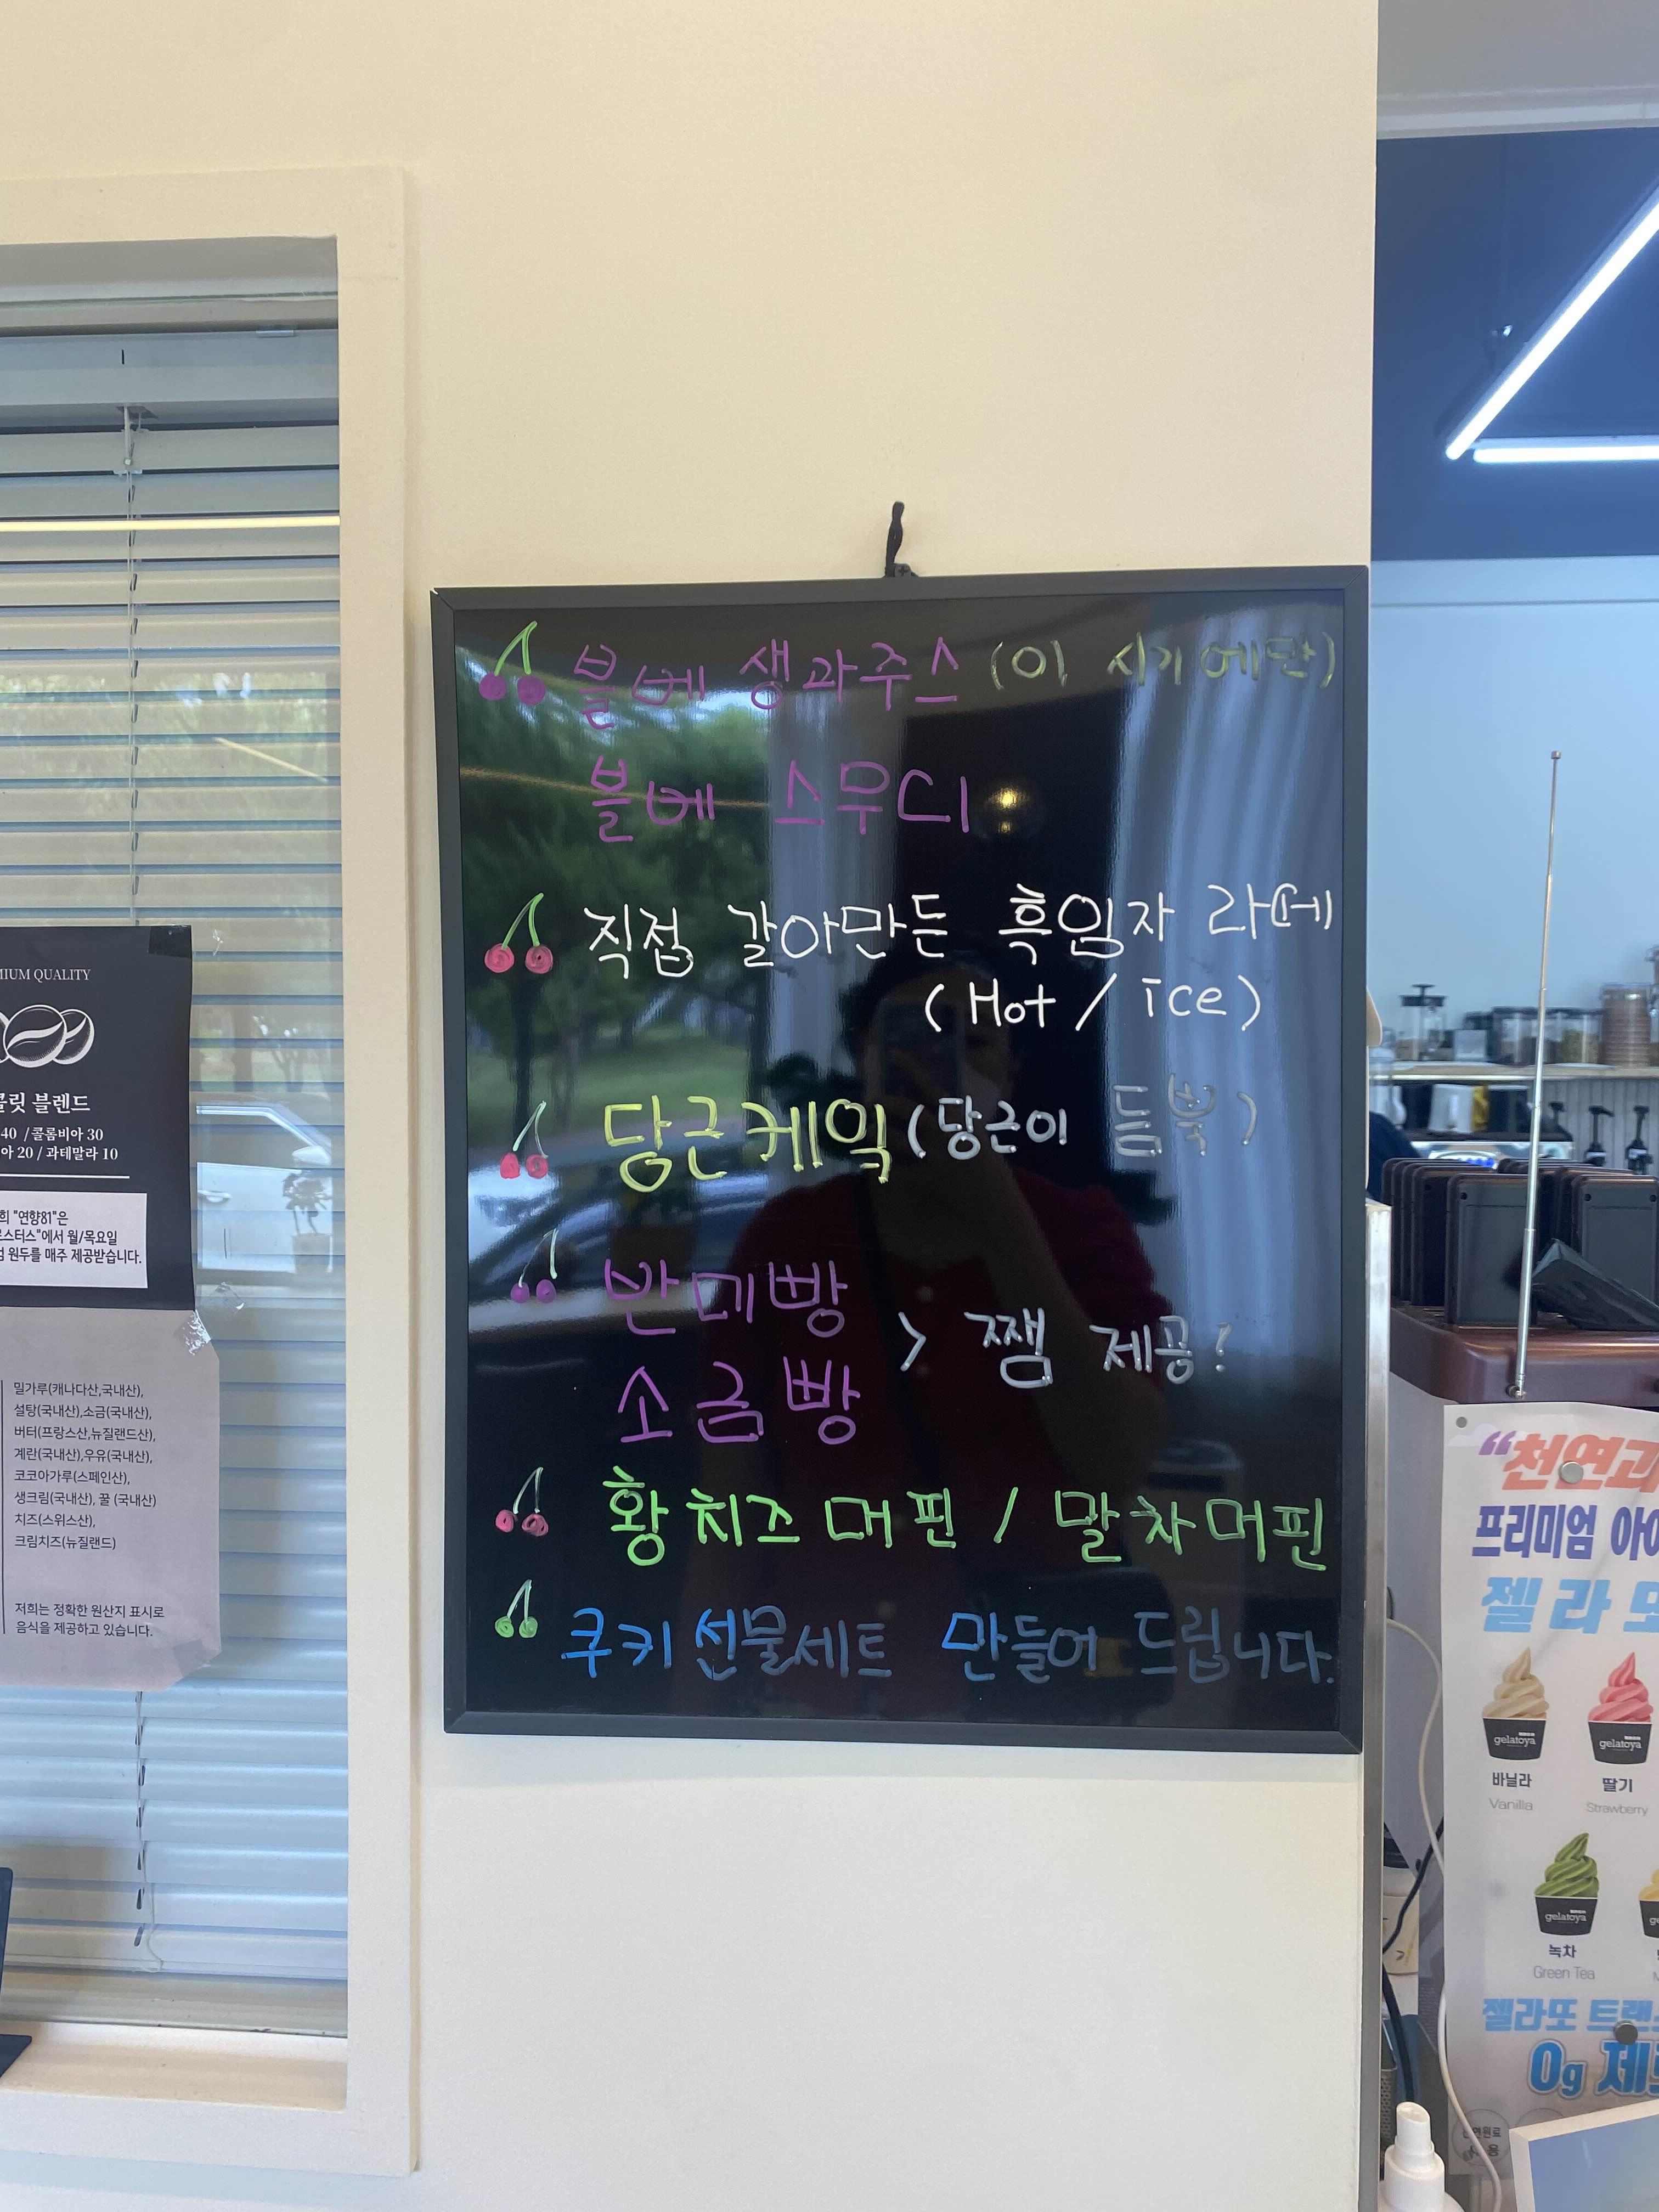 MIUM QUALITY
블렌드
40 / 콜롬비아 30
아 20 / 과테말라 10
희 "연향81"은
스터스"에서 월/목요일
원두를 매주 제공받습니다.
밀가루(캐나다산,국내산),
설탕(국내산),소금(국내산),
버터(프랑스산,뉴질랜드산),
계란(국내산),우유(국내산),
코코아가루(스페인산),
생크림(국내산), 꿀 (국내산)
치즈(스위스산),
크림치즈(뉴질랜드)
저희는 정확한 원산지 표시로
음식을 제공하고 있습니다.
블베 생과주스 (이 시기에만)
블베 스무디
직접 갈아만든 흑임자 라떼
(Hot / ice)
당근케익 (당근이 듬뿍)
반미빵
소금빵
> 쨈 제공!
황치즈머핀 / 말차머핀
쿠키선물세트 만들어 드립니다.
"천연과
프리미엄
젤라또
gelatoya
gelatoya
바닐라
딸기
Vanilla
Strawberry
gelatoya
녹차
Green Tea
젤라또 트랜스
0g 제로